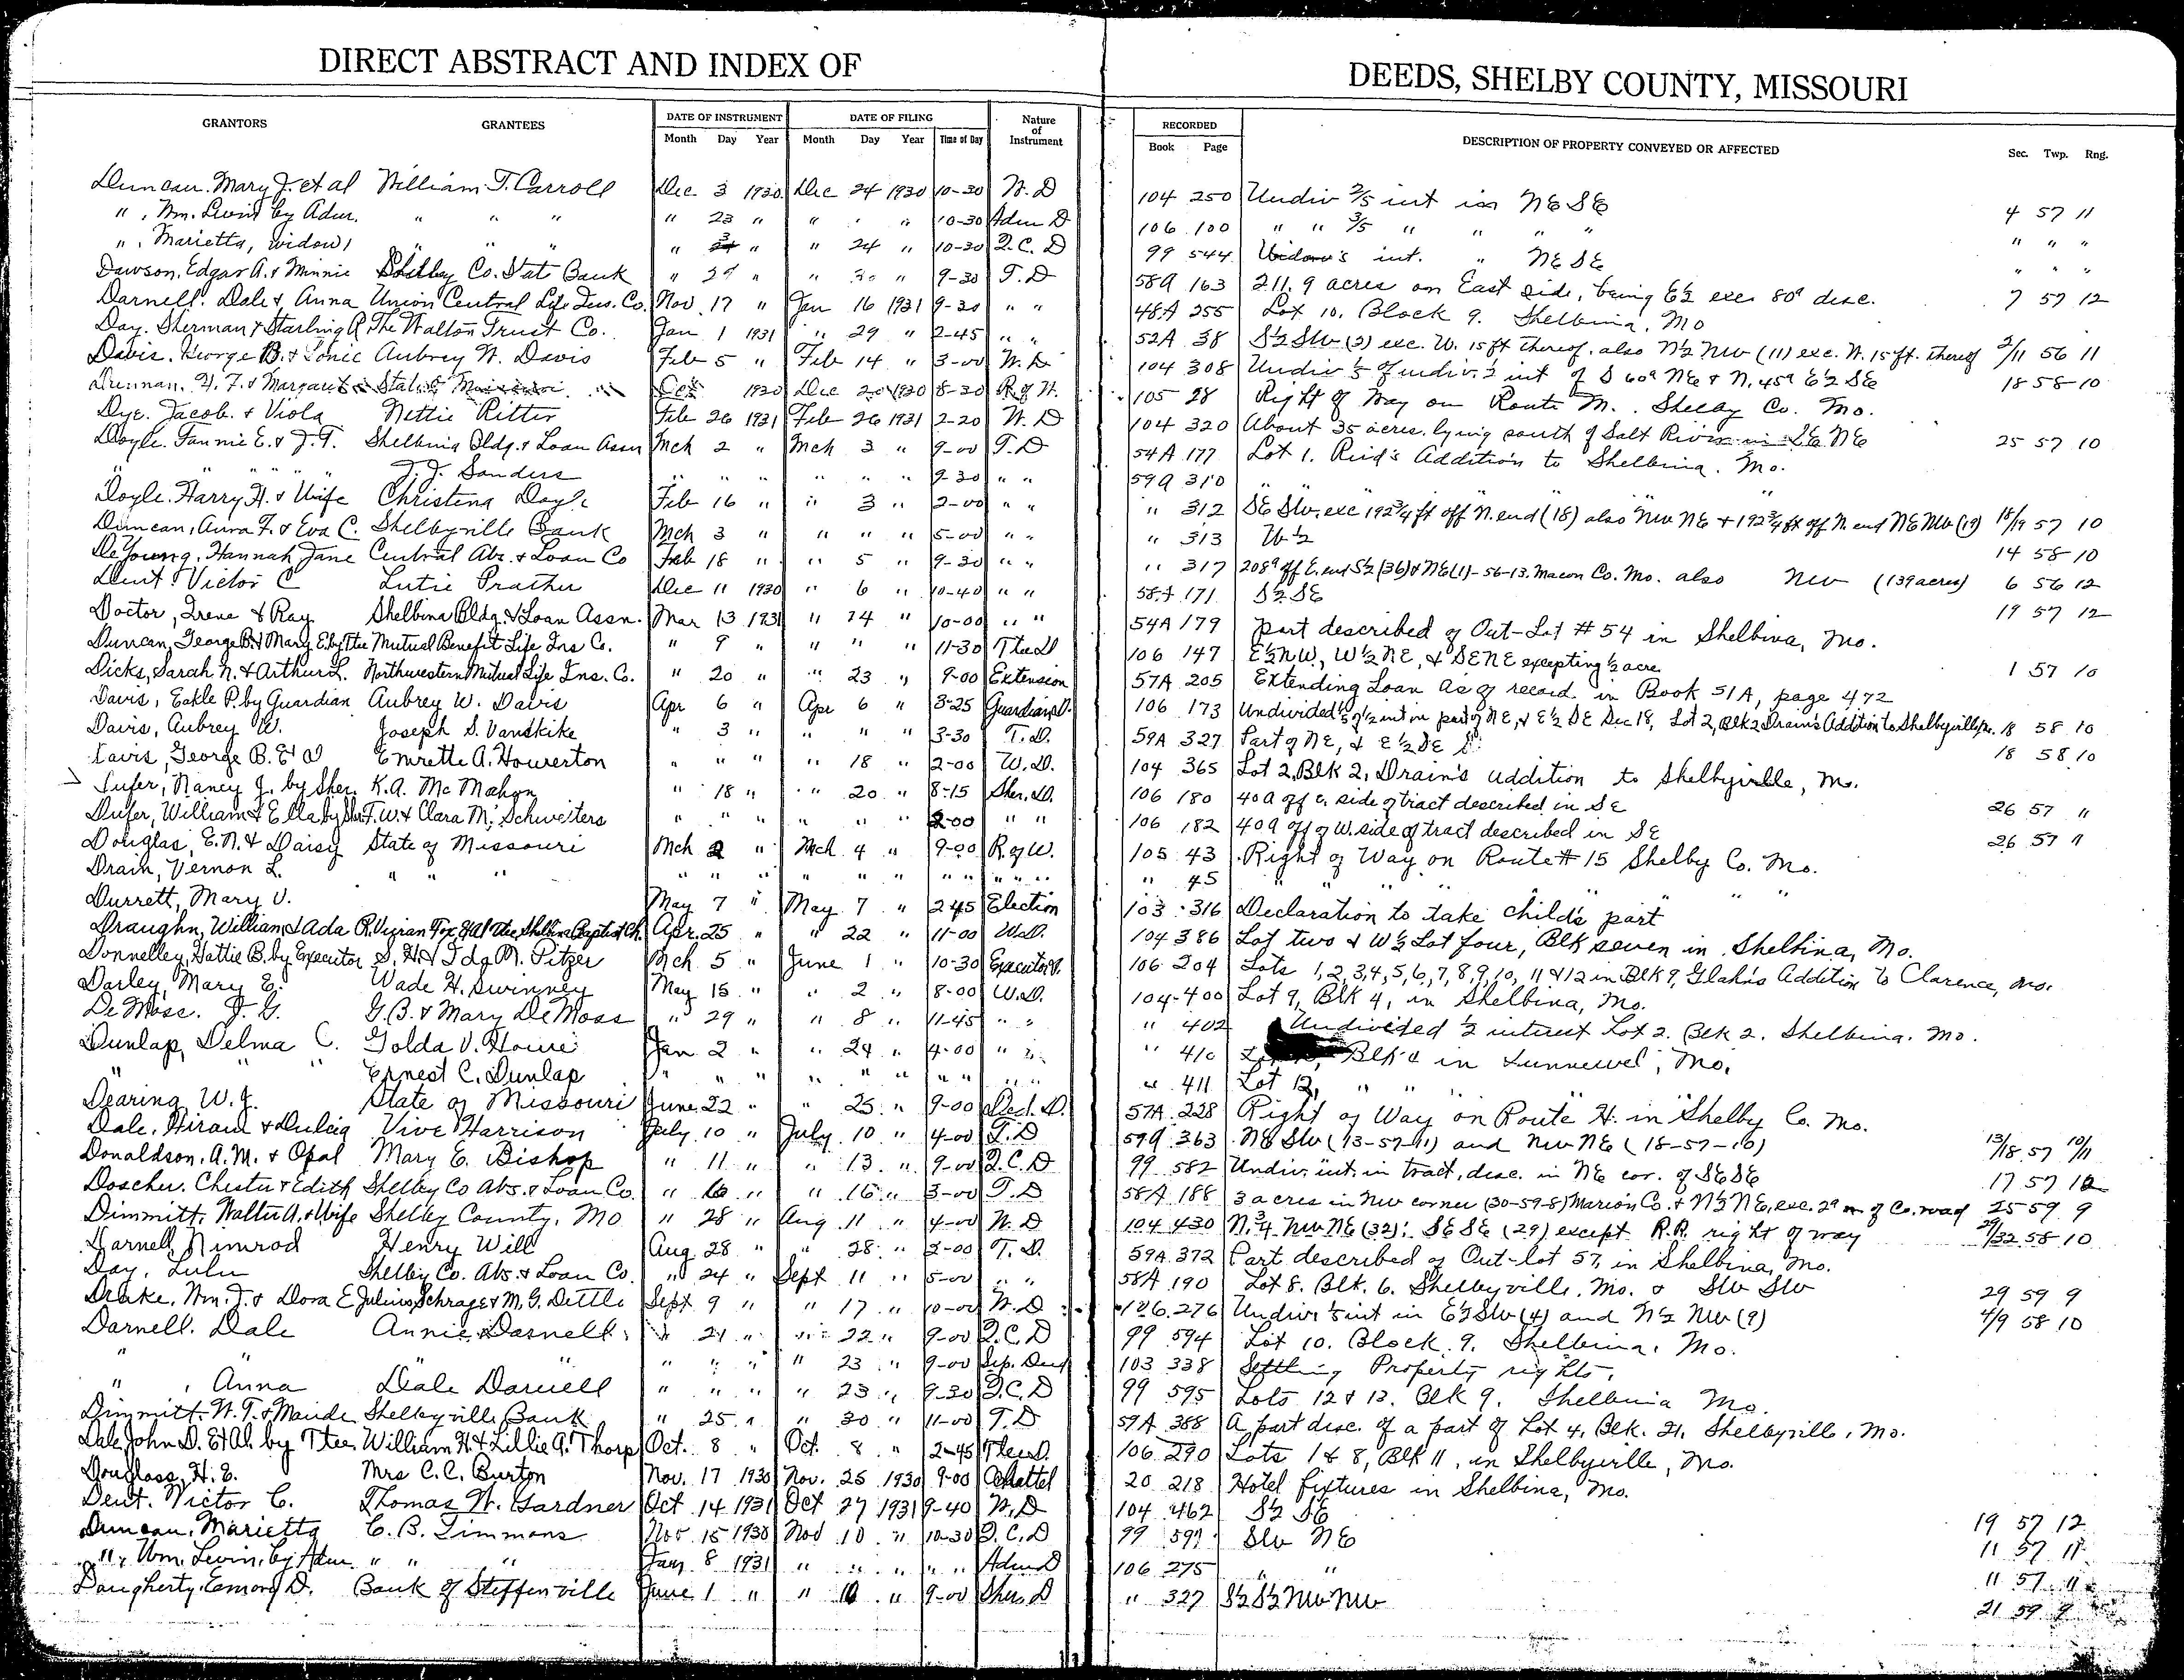 DIRECT ABSTRACT AND INDEX OF DEEDS, SHELBY COUNTY, MISSOURI
GRANTORS GRANTEES DATE OF INSTRUMENT DATE OF FILING Nature of Instrument RECORDED DESCRIPTION OF PROPERTY CONVEYED OR AFFECTED Sec. Twp. Rng.
Month Day Year Month Day Year Time of Day Book Page
Duncan. Mary J. et al William T. Carroll Dec 3 1930 Dec 24 1930 10-30 W. D 104 250 Undiv 2/5 int in NE SE 4 57 11
" , Wm. Levin by Adm. " " " " 23 " " " " 10-30 Adm D 106 100 " " 3/5 " " " " " " "
" , Marietta, widow " " " " " " 24 " 10-30 Q. C. D 99 544 Widow's int. " NE SE " " "
Dawson, Edgar A. & Minnie Shelby Co. State Bank " " " 9-30 T. D 58A 163 211.9 acres on East side, being E½ exc 80a desc. 7 57 12
Darnell. Dale & Anna Union Central Life Ins. Co. Nov 17 " Jan 16 1931 9-30 " " 48A 255 Lot 10, Block 9. Shelbina, Mo
Day. Sherman & Starling A The Walton Trust Co. Jan 1 1931 " 29 " 2-45 " " 52A 38 S½ SW (2) exc. W. 15 ft thereof, also N½ NW (11) exc. W. 15 ft. thereof 2/11 56 11
Davis. George B. & Aubrey W. Davis Feb 5 " Feb 14 " 3-00 W. D 104 308 Undiv ⅕ of undiv. ½ int of S 60a NE & N. 45a E½ SE 18 58 10
Drennan. H. F. & Margaret State of Missouri Oct 1930 Dec 20 1930 8-30 R. of W. 105 28 Right of Way on Route M. Shelby Co. Mo.
Dye. Jacob. & Viola Nettie Ritter Feb 26 1931 Feb 26 1931 2-20 W. D 104 320 About 35 acres lying south of Salt River in SE NE 25 57 10
Doyle. Fannie E. & J. T. Shelbina Bldg. & Loan Assn Mch 2 " Mch 3 " 9-00 T. D 54A 177 Lot 1. Reid's Addition to Shelbina. Mo.
" " " " " J. J. Sanders " " " " " " 9-30 " " 59A 310 " " "
Doyle. Harry H. & Wife Christena Doyle Feb 16 " " 3 " 2-00 " " " 312 SE SW, exc 192¾ ft off N. end (18) also NW NE & 192¾ ft off N. end NE NW (19) 18/19 57 10
Duncan, Anna F. & Eva C. Shelbyville Bank Mch 3 " " " " 5-00 " " " 313 W½ 14 58 10
DeYoung, Hannah Jane Central Abs. & Loan Co Feb 18 " " 5 " 9-30 " " " 317 208a off E. end S½ (36) & NE (1)-56-13. Macon Co. Mo. also NW (139 acres) 6 56 12
Dent. Victor C Lutie Prather Dec 11 1930 " 6 " 10-40 " " 58A 171 S½ SE 19 57 12
Doctor, Irene & Ray Shelbina Bldg. & Loan Assn. Mar 13 1931 " 14 " 10-00 " " 54A 179 part described of Out-Lot # 54 in Shelbina, Mo.
Duncan, George B. & Mary E. by Ttee Mutual Benefit Life Ins Co. " 9 " " " " 11-30 Ttee D 106 147 E½ NW, W½ NE, & SE NE excepting ½ acre 1 57 10
Dicks, Sarah N. & Arthur L. Northwestern Mutual Life Ins. Co. " 20 " " 23 " 9-00 Extension 57A 205 Extending Loan as of record in Book 51A, page 472
Davis, Eakle P. by Guardian Aubrey W. Davis Apr 6 " Apr 6 " 3-25 Guardian D. 106 173 Undivided ⅕ of ½ int in part of NE, & E½ SE Sec 18, Lot 2, Blk 2 Drain's Addition to Shelbyville, Mo. 18 58 10
Davis, Aubrey W. Joseph S. Vanskike " 3 " " " " 3-30 T. D. 59A 327 Part of NE, & E½ SE 18 58 10
Davis, George B. Et Al Emrette A. Howerton " " " " 18 " 2-00 W. D. 104 365 Lot 2, Blk 2, Drain's addition to Shelbyville, Mo.
Dufer, Nancy J. by Sher. K. A. McMahon " 18 " " 20 " 8-15 Sher. D. 106 180 40a off E. side of tract described in SE 26 57 11
Dufer, William & Ella by Sher. F. W. & Clara M. Schweiters " " " " " " 2-00 " " 106 182 40a off of W. side of tract described in SE 26 57 11
Douglas, E. N. & Daisy State of Missouri Mch 2 " Mch 4 " 9-00 R. of W. 105 43 Right of Way on Route # 15 Shelby Co. Mo.
Drain, Vernon L. " " " " " " " " " " " " " " 45 " " " " "
Durrett, Mary V. May 7 " May 7 " 2 45 Election 103 316 Declaration to take child's part
Draughn, William & Ada R. Vivian Fox Et Al Ttee Shelbina Baptist Ch. Apr. 25 " " 22 " 11-00 W. D. 104 386 Lot two & W½ Lot four, Blk seven in Shelbina, Mo.
Donnelley, Hattie B. by Executor S. H. & Ida M. Pitzer Mch 5 " June 1 " 10-30 Executor D. 106 204 Lots 1, 2, 3, 4, 5, 6, 7, 8, 9, 10, 11 & 12 in Blk 9, Glahn's Addition to Clarence, Mo.
Darley, Mary E. Wade H. Swinney May 15 " " 2 " 8-00 W. D. 104-400 Lot 9, Blk 4, in Shelbina, Mo.
DeMoss. J. G. G. B. & Mary DeMoss " 29 " " 8 " 11-45 " " " 402 Undivided ½ interest Lot 2. Blk 2. Shelbina. Mo.
Dunlap, Delma C. Golda V. Howe Jan 2 " " 24 " 4-00 " " " 410 Blk 4 in Hunnewel, Mo.
" " Ernest C. Dunlap " " " " " " " " " " " 411 Lot 12, " " "
Dearing W. J. State of Missouri June 22 " " 25 " 9-00 Ded. D. 57A 228 Right of Way on Route H. in Shelby Co. Mo.
Dale, Hiram & Dulcia Vive Harrison July 10 " July 10 " 4-00 T. D 59A 363 NE SW (13-57-11) and NW NE (18-57-10) 13/18 57 10/11
Donaldson. A. M. & Opal Mary E. Bishop " 11 " " 13 " 9-00 Q. C. D 99 582 Undiv. int. in tract, desc. in NE cor. of SE SE 17 57 12
Doscher. Chester & Edith Shelby Co Abs. & Loan Co. " 16 " " 16 " 3-00 T. D 58A 188 3 acres in NW corner (30-59-8) Marion Co. & N½ NE, exc. 2a of Co. road 25 59 9
Dimmitt. Walter A. & Wife Shelby County, Mo " 28 " Aug 11 " 4-00 W. D 104 430 N. ¾ NW NE (32): SE SE (29) except R.R. right of way 29/32 58 10
Darnell, Nimrod Henry Will Aug 28 " " 28 " 2-00 T. D. 59A 372 Part described of Out-lot 57, in Shelbina, Mo.
Day, Lulu Shelby Co. Abs. & Loan Co. " 24 " Sept 11 " 5-00 " " 58A 190 Lot 8. Blk. 6. Shelbyville, Mo. & SW SW 29 59 9
Drake, Wm. J. & Dora E Julius Schrage & M. G. Dettle Sept 9 " " 17 " 10-00 W. D 106 276 Undiv ⅕ int in E½ SW (4) and N½ NW (9) 4/9 58 10
Darnell. Dale Annie Darnell " 21 " " 22 " 9-00 Q. C. D 99 594 Lot 10. Block 9. Shelbina, Mo.
" " " " " " " 23 " 9-00 Sep. Deed 103 338 Settling Property rights.
" , Anna Dale Darnell " " " " 23 " 9-30 Q. C. D 99 595 Lots 12 & 13. Blk 9. Shelbina Mo.
Dimmitt. W. T. & Maude Shelbyville Bank " 25 " " 30 " 11-00 T. D 59A 388 A part desc. of a part of Lot 4, Blk. H. Shelbyville, Mo.
Dale, John D. Et Al. by Ttee William H. & Lillie A. Thorp Oct. 8 " Oct. 8 " 2-45 Ttee D. 106 290 Lots 1 & 8, Blk 11, in Shelbyville, Mo.
Douglass, H. E. Mrs C. C. Burton Nov. 17 1930 Nov. 25 1930 9-00 Chattel 20 218 Hotel fixtures in Shelbina, Mo.
Dent. Victor C. Thomas W. Gardner Oct 14 1931 Oct 27 1931 9-40 W. D 104 462 S½ SE 19 57 12
Duncan, Marietta C. B. Timmons Nov 15 1930 Nov 10 " 10-30 Q. C. D 99 597 SW NE 11 57 11
" , Wm. Levin, by Adm. " " " Jan 8 1931 " " " " " Adm D 106 275 " " 11 57 11
Daugherty, Emory D. Bank of Steffenville June 1 " " 10 " 9-00 Sher. D " 327 S½ S½ NW NW 21 59 9